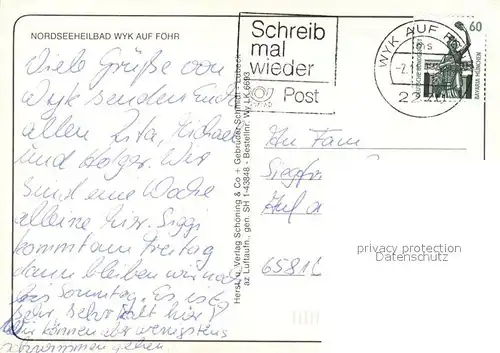 NORDSEEHEILBAD WYK AUF FÖHR
Viele Grüße von
Wyk senden Euch
allen Rita, Michael
und Holger. Wir
sind eine Woche
alleine hier. Siggi
kommt am Freitag
dann bleiben wir noch
bis Sonntag. Es ist
sehr, sehr kalt hier!
Wir können aber wenigstens
schwimmen gehen
Schreib
mal
wieder
Post
WYK AUF
60
BAVARIA MÜNCHEN
Herst. u. Verlag Schöning & Co + Gebrüder Schmidt - Lübeck
az Luftaufn., gen. SH 1-43848 - Bestellnr. Wy LK 6693
An Fam
Siegfr
Auf
6581
privacy protection
Datenschutz